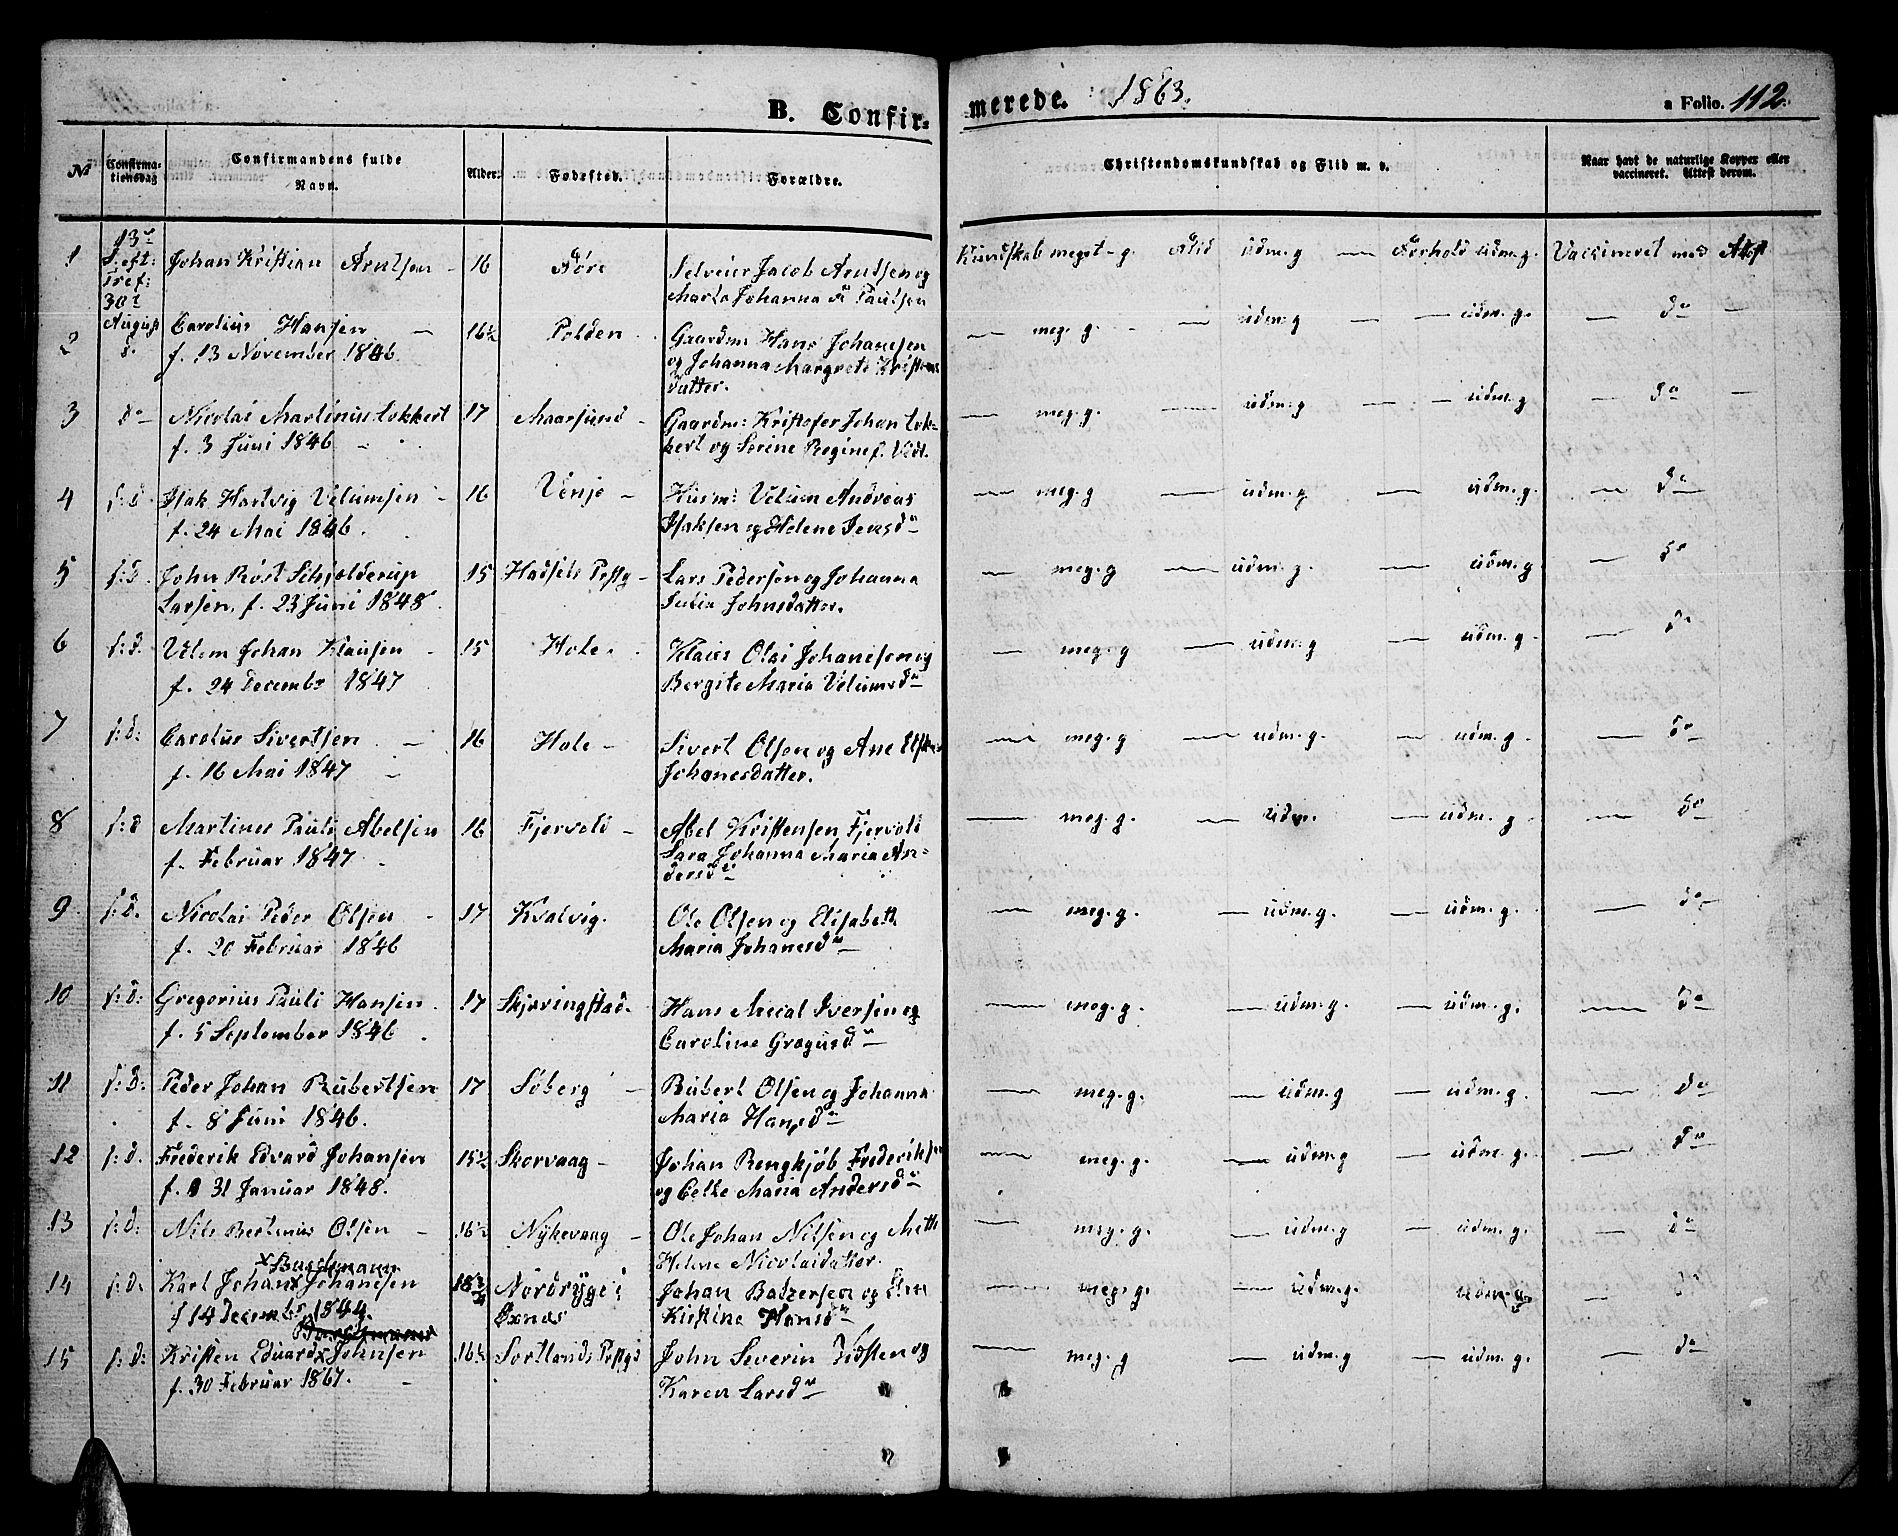 B. Confirmerede. 1863. a Folio. 112.
No Confirmationsdag Confirmandens fulde Navn. Alder. Fødested. Forældre. Christendomskundskab og Flid m. v. Naar havt de naturlige Kopper eller vaccineret. Attest derom.
1 Johan Kristian Arntsen 16 Føre Selveier Jacob Arntsen og Kundskab meget g. Flid udm. g — Forhold udm. g. Vaccineret med Attest
Marta Johanna Paulsen
30te August
2 d. Carolius Hansen — 16½ Polden Gaardm. Hans Johansen — meg. g. — udm. g — udm. g. — do —
f. 13 November 1846. og Johanna Margrete Kristens
datter.
3 do Nicolai Martinus Lokkert 17 Maarsund Gaardm: Kristofer Johan Lok- — meg. g. — udm. g — udm. g — do —
f. 3 Juni 1846 kert og Serine Regine f.
4 s: d. Isak Hartvig Velumsen 16 Venje Husm: Velum Andreas — meg. g — udm. g — udm. g. — do
f. 24 Mai 1846. Isaksen og Helene Jensdr
5 s: d. John Røst Schjelderup 15 Hadsels Prstg Lars Pedersen og Johanna — meg. g — udm. g. — udm. g — do
Larsen, f. 23 Juni 1848. Julia Johnsdatter.
6 s: d. Velom Johan Klausen 15 Hole Klaus Olai Johanesen og — meg. g — udm. g — udm. g — do
f. 24 Decembr 1847 Bergite Maria Velumsdr
7 s: d: Carolus Sivertsen 16 Hole Sivert Olsen og Ane — meg. g — udm. g. — udm. g. — do
f. 16 Mai 1847 Johanesdatter.
8 s: d Martines Pauli Abelsen 16 Fjervold Abel Kristensen Fjervold — meg. g. — udm. — udm. g — do
f. Februar 1847. Sara Johanna Maria An-
dersdr
9 s: d. Nicolai Peder Olsen 17 Kvalvig. Ole Olsen og Elisabeth — meg. g. — udm. g. — udm. g. — do
f. 20 Februar 1846 Maria Johanesdr
10 s: d: Gregorius Pauli Hansen 17 Skjøringstad. Hans Mecal Iversen og — meg. g. — udm. g. — udm. g. — do
f. 5 September 1846 Caroline Gregusdr
11 s: d: Peder Johan Rubertsen 17 Søberg Rubert Olsen og Johanna — meg. g. — udm. g — udm. g. — do
f. 8 Juni 1846. Maria Hansdr
12 s: d. Frederik Edvard Johansen 15½ Skorvaag Johan Rengkjøb Frederiksen — meg. g. — udm. g — udm. g. — do
f. 31 Januar 1848. og Maria Andersdr
13 s: d: Nils Bertinus Olsen 16½ Nykevaag Ole Johan Nilsen og Meth — meg. g. — udm. g — udm. g. — do
Helene Nicolaidatter.
x Buschmann
14 s: d. Karl Johan x Johanesen 18¾ Nordryge i Johan Balzersen og — meg. g. — udm. g. — udm. g — do
f 14 Decembr 1844. Øxnes Kirstine Hansdr
15 s: d: Kristen Eduard x Johnsen 16½ Sortlands Prstgd John Severin og — meg. g — udm. g — udm. g. — do
f. 30 Februar 1867. Karen Larsdr